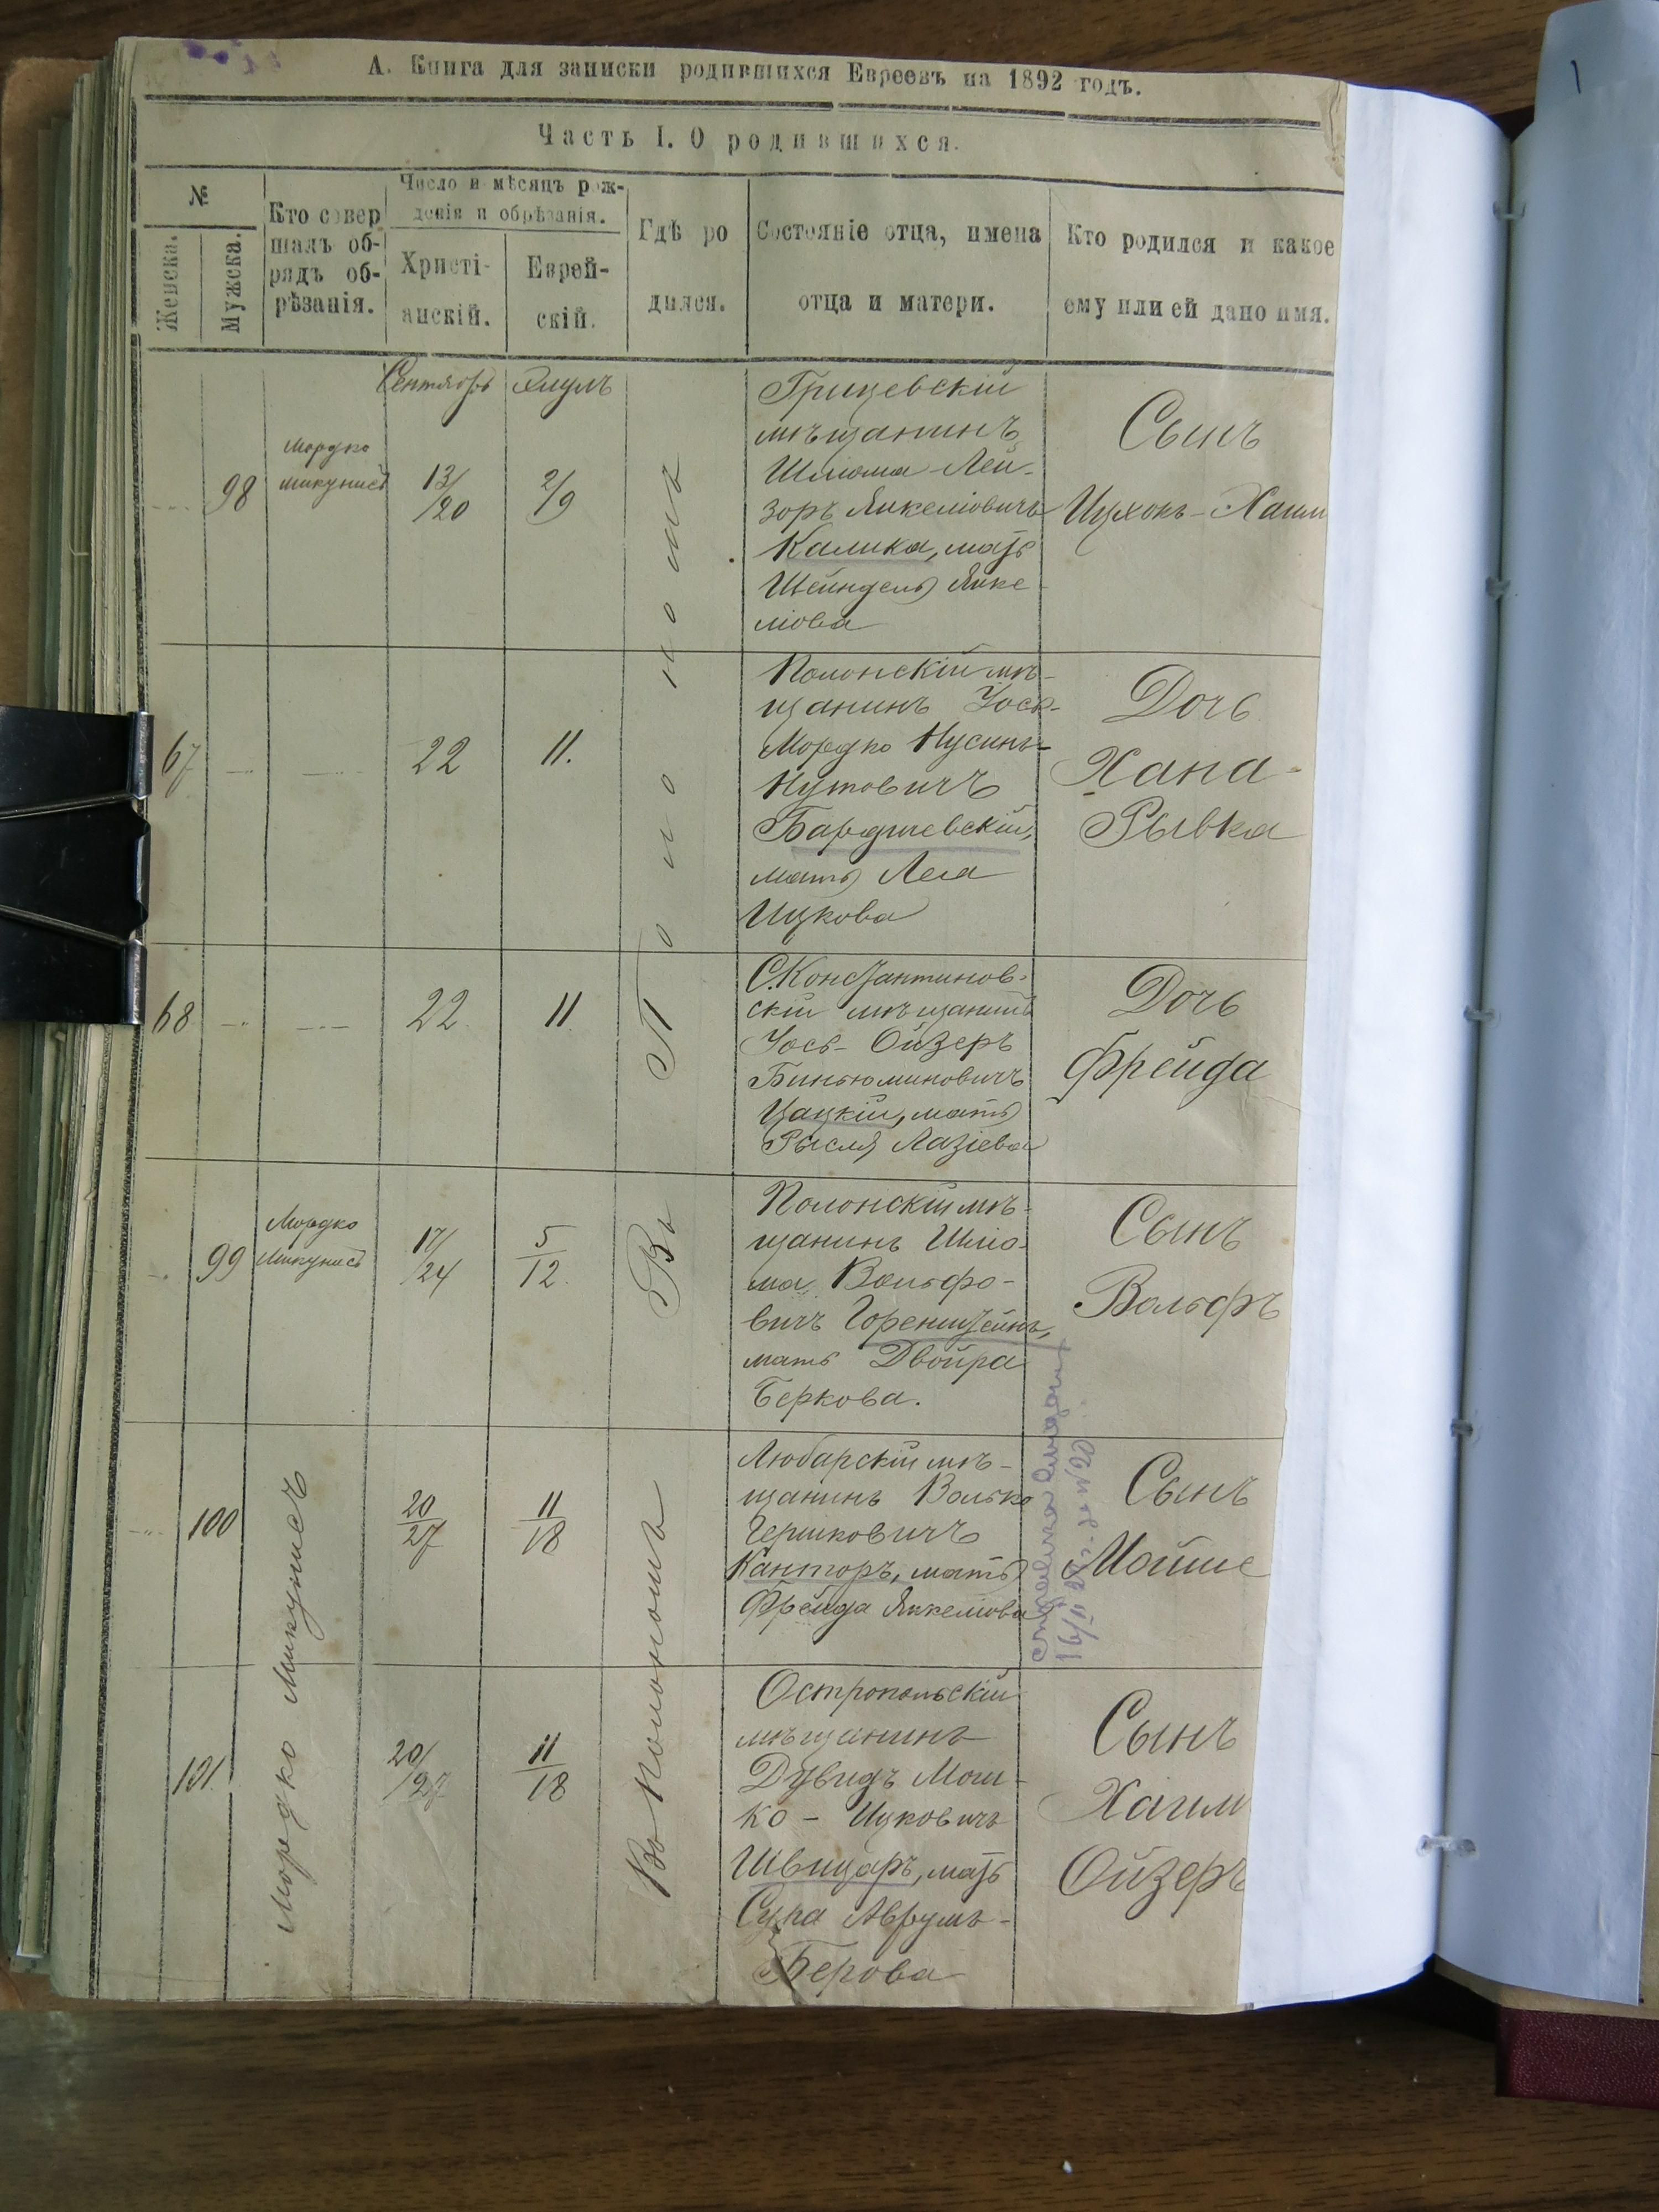 А. Книга для записки родившихся Евреевъ на 1892 годъ.
Часть I. О родившихся.
№
Женска.
Мужска.
Кто совер
шалъ об-
рядъ об-
рѣзанія.
Число и мѣсяцъ рож-
денія и обрѣзанія.
Христі-
анскій.
Еврей-
скій.
Гдѣ ро
дился.
Состояніе отца, имена
отца и матери.
Кто родился и какое
ему или ей дано имя.
Сентябрь Элулъ
98
Мордко
Микунисъ
13/20
2/9
Въ Полономъ
Грицевскій
мѣщанинъ
Шлиома Лей-
зоръ Янкеліовичъ
Калика, мать
Шейндель Янке-
ліова
Сынъ
Ицхокъ-Хаим
67
22
11.
Полонскій мѣ-
щанинъ
Мордко Нусинъ-
Нутовичъ
мать Лея
Ицкова
Дочь
Хана-
Рывка
68
22
11
С.Константинов-
скій мѣщанинъ
Іось-Ойзеръ
Биньюминовичъ
Цацкій, мать
Рысля Лазіева
Дочь
Фрейда
99
Мордко
Микунисъ
17/24
5/12.
Полонскій мѣ-
щанинъ Шлио-
ма Вольфо-
вичъ Горенштейнъ,
мать Двойра
Беркова.
Сынъ
Вольфъ
100
Мордко Микунисъ
20/27
11/18
Во Полономъ
Любарскій мѣ-
щанинъ Волько
Гершковичъ
Канторъ, мать
Фрейда Янкеліова
Сынъ
Мойше
101.
20/27
11/18
Остропольскій
мѣщанинъ
Дувидъ Мош-
ко - Ицковичъ
Швицаръ, мать
Сура Аврумъ-
Берова
Сынъ
Хаим
Ойзеръ
1